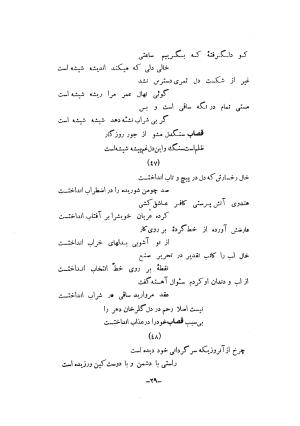 کو دلگرفتهٔ که بگرییم ساعتی
خالی دلی که میکند اندیشه شیشه است
غیر از شکست دل ثمری دسترس نشد
گوئی نهال عمر مرا ریشه شیشه است
مستی تمام در نگه ساقی است و بس
گر بی شراب نشئه دهد شیشه شیشه است
قصاب سنگدل مشو از جور روزگار
ظلم است سنگ و این دل غم پیشه شیشه است
(۴۷)
خال رخسارش که دل در پیچ و تاب انداختست
صد چو من شوریده را در اضطراب انداختست
هندوی آتش پرستی کافر عاشق کشی
کرده عریان خویش را بر آفتاب انداختست
عارضش آورده از خط گردهٔ بر روی کار
از نو آشوبی بدلهای خراب انداختست
خال لب را کاتب تقدیر در تحریر صنع
نقطهٔ بر روی خط انتخاب انداختست
از لب و دندان او کردم سئوال آهسته گفت
عقد مروارید ساقی در شراب انداختست
نیست اصلا رحم در دل گلرخان دهر را
بی سبب قصاب خود را در عذاب انداختست
(۴۸)
چرخ از آنروزیکه سرگردانی خود دیده است
راستی با دشمن و با دوست کین ورزیده است
-۲۹-